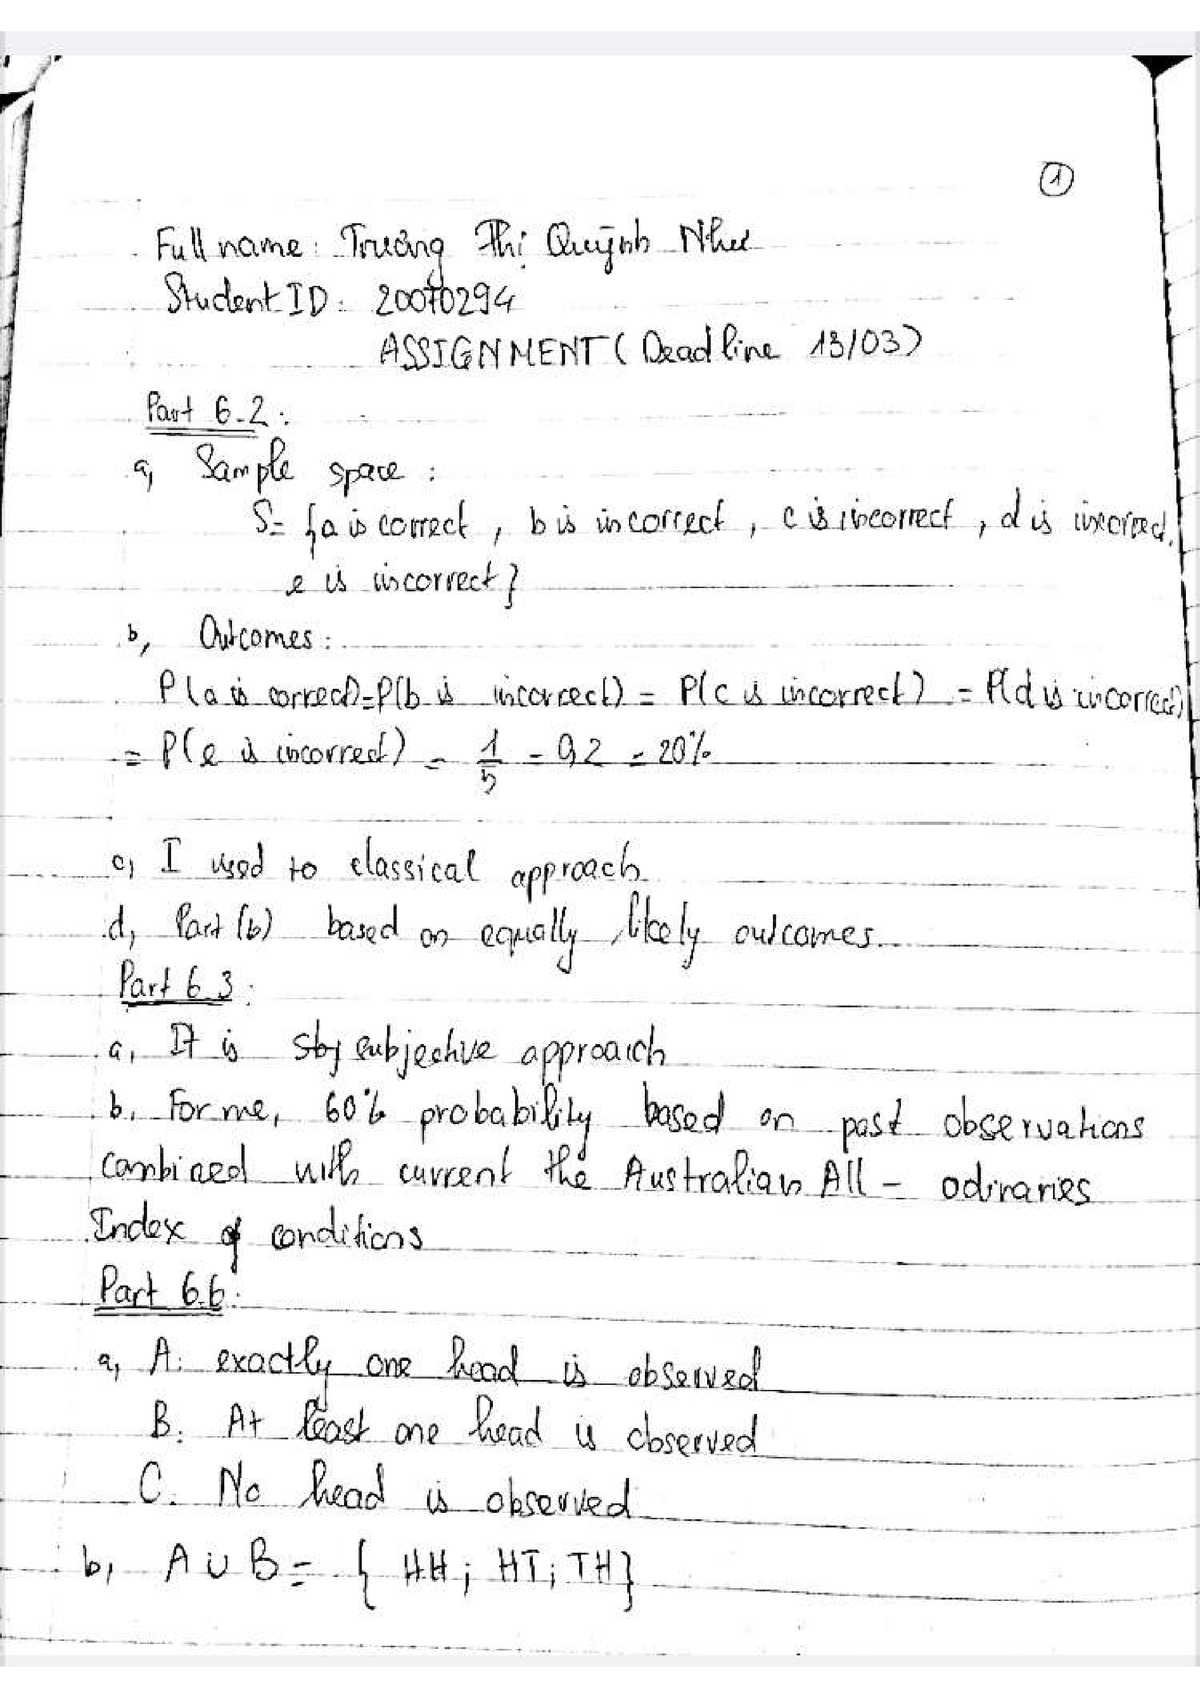 1
Full name: Trương Thị Quỳnh Như
Student ID: 20070294
ASSIGNMENT (Deadline 13/03)
Part 6.2:
a, Sample space:
S= {a is correct, b is incorrect, c is incorrect, d is incorrect,
e is incorrect}
b, Outcomes:
P(a is correct)=P(b is incorrect) = P(c is incorrect) = P(d is incorrect)
= P(e is incorrect) = 1/5 = 0,2 = 20%
c, I used to classical approach
d, Part (b) based on equally likely outcomes.
Part 6.3:
a, It is subjective approach
b, For me, 60% probability based on past observations
combined with current the Australian All - odinaries
Index of conditions
Part 6.6:
a, A: exactly one head is observed
B: At least one head is observed
C. No head is observed
b, A∪B = {HH; HT; TH}